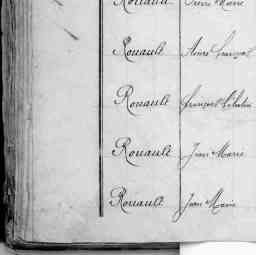 Rouault Pierre Marie
Rouault Aimé François
Rouault François Célestin
Rouault Jean Marie
Rouault Jean Marie